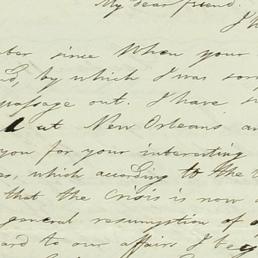 My dear friend.
I h
ber since When your
nd, by which I was sorr
passage out. I have s
at New Orleans an
you for your interesting
es, which according to the
that the Crisis is now
general resumption of
ard to our affairs I beg